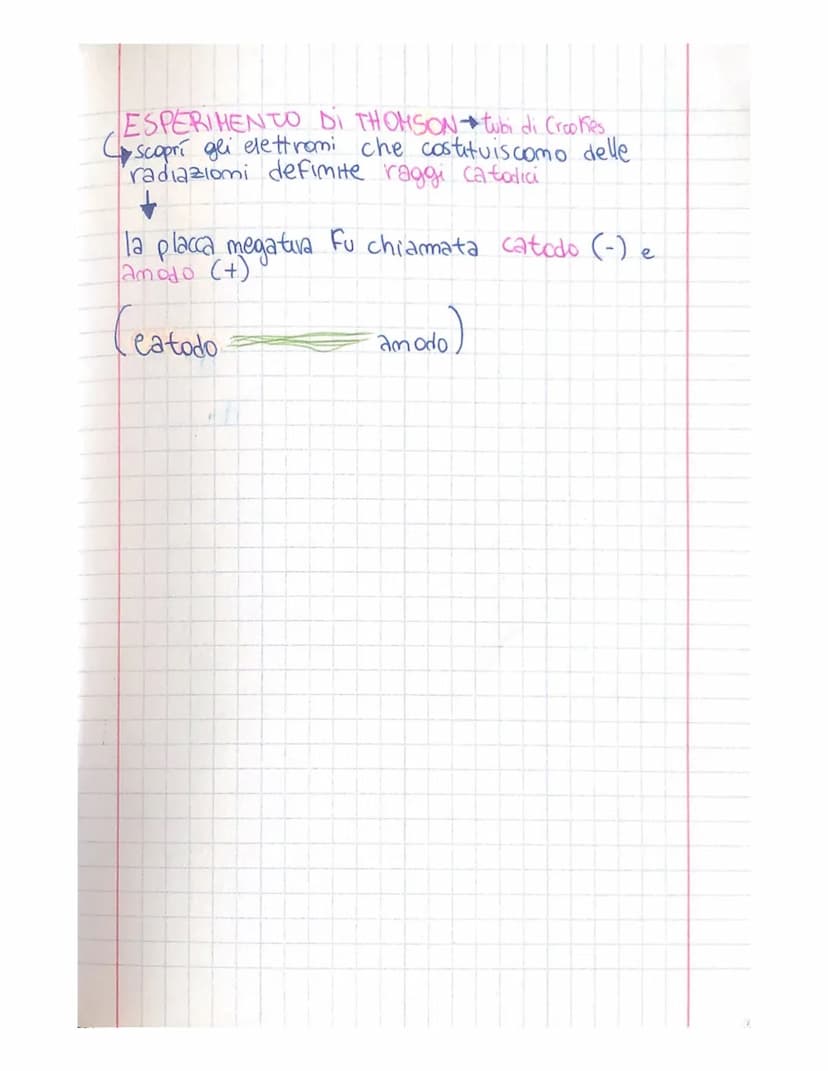 ESPERIMENTO DI THOMSON → tubi di Crookes
↳ scoprí gli elettroni che costituiscono delle
radiazioni definite raggi catodici
↓
la placca negativa fu chiamata catodo (-) e
anodo (+)
(catodo anodo)